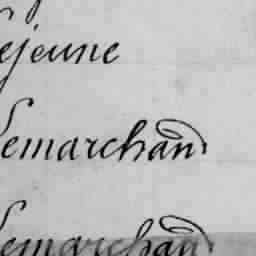 Lejeune
Lemarchand
Lemarchand